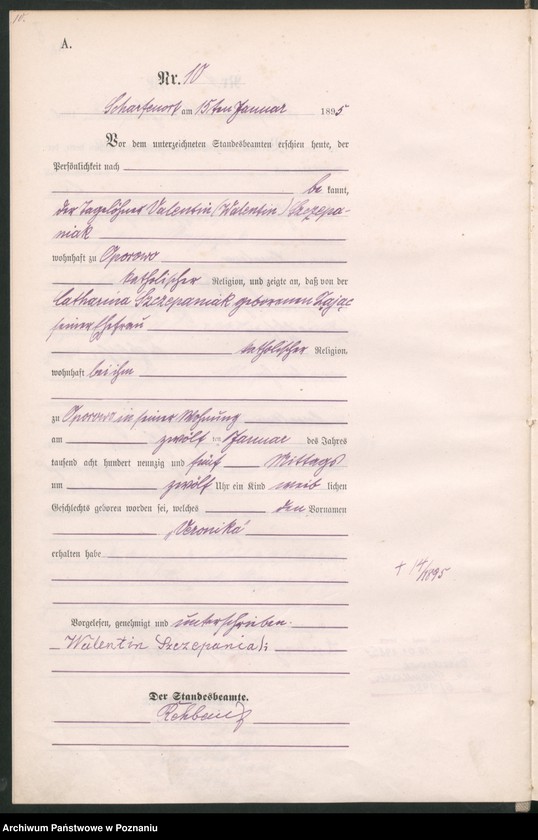 10.
A.
Nr. 10
Scharfenort am 15ten Januar 1895
Vor dem unterzeichneten Standesbeamten erschien heute, der
Persönlichkeit nach
be kannt,
der Tagelöhner Valentin (Walentin) Szczepa-
niak
wohnhaft zu Oporowo
katholischer Religion, und zeigte an, daß von der
Catharina Szczepaniak geborenen Zając
seiner Ehefrau
katholischer Religion,
wohnhaft bei ihm
zu Oporowo in seiner Wohnung
am zwölf ten Januar des Jahres
tausend acht hundert neunzig und fünf Mittags
um zwölf Uhr ein Kind weib lichen
Geschlechts geboren worden sei, welches den Vornamen
Veronika
erhalten habe
Vorgelesen, genehmigt und unterschrieben.
Walentin Szczepaniak
Der Standesbeamte.
Archiwum Państwowe w Poznaniu